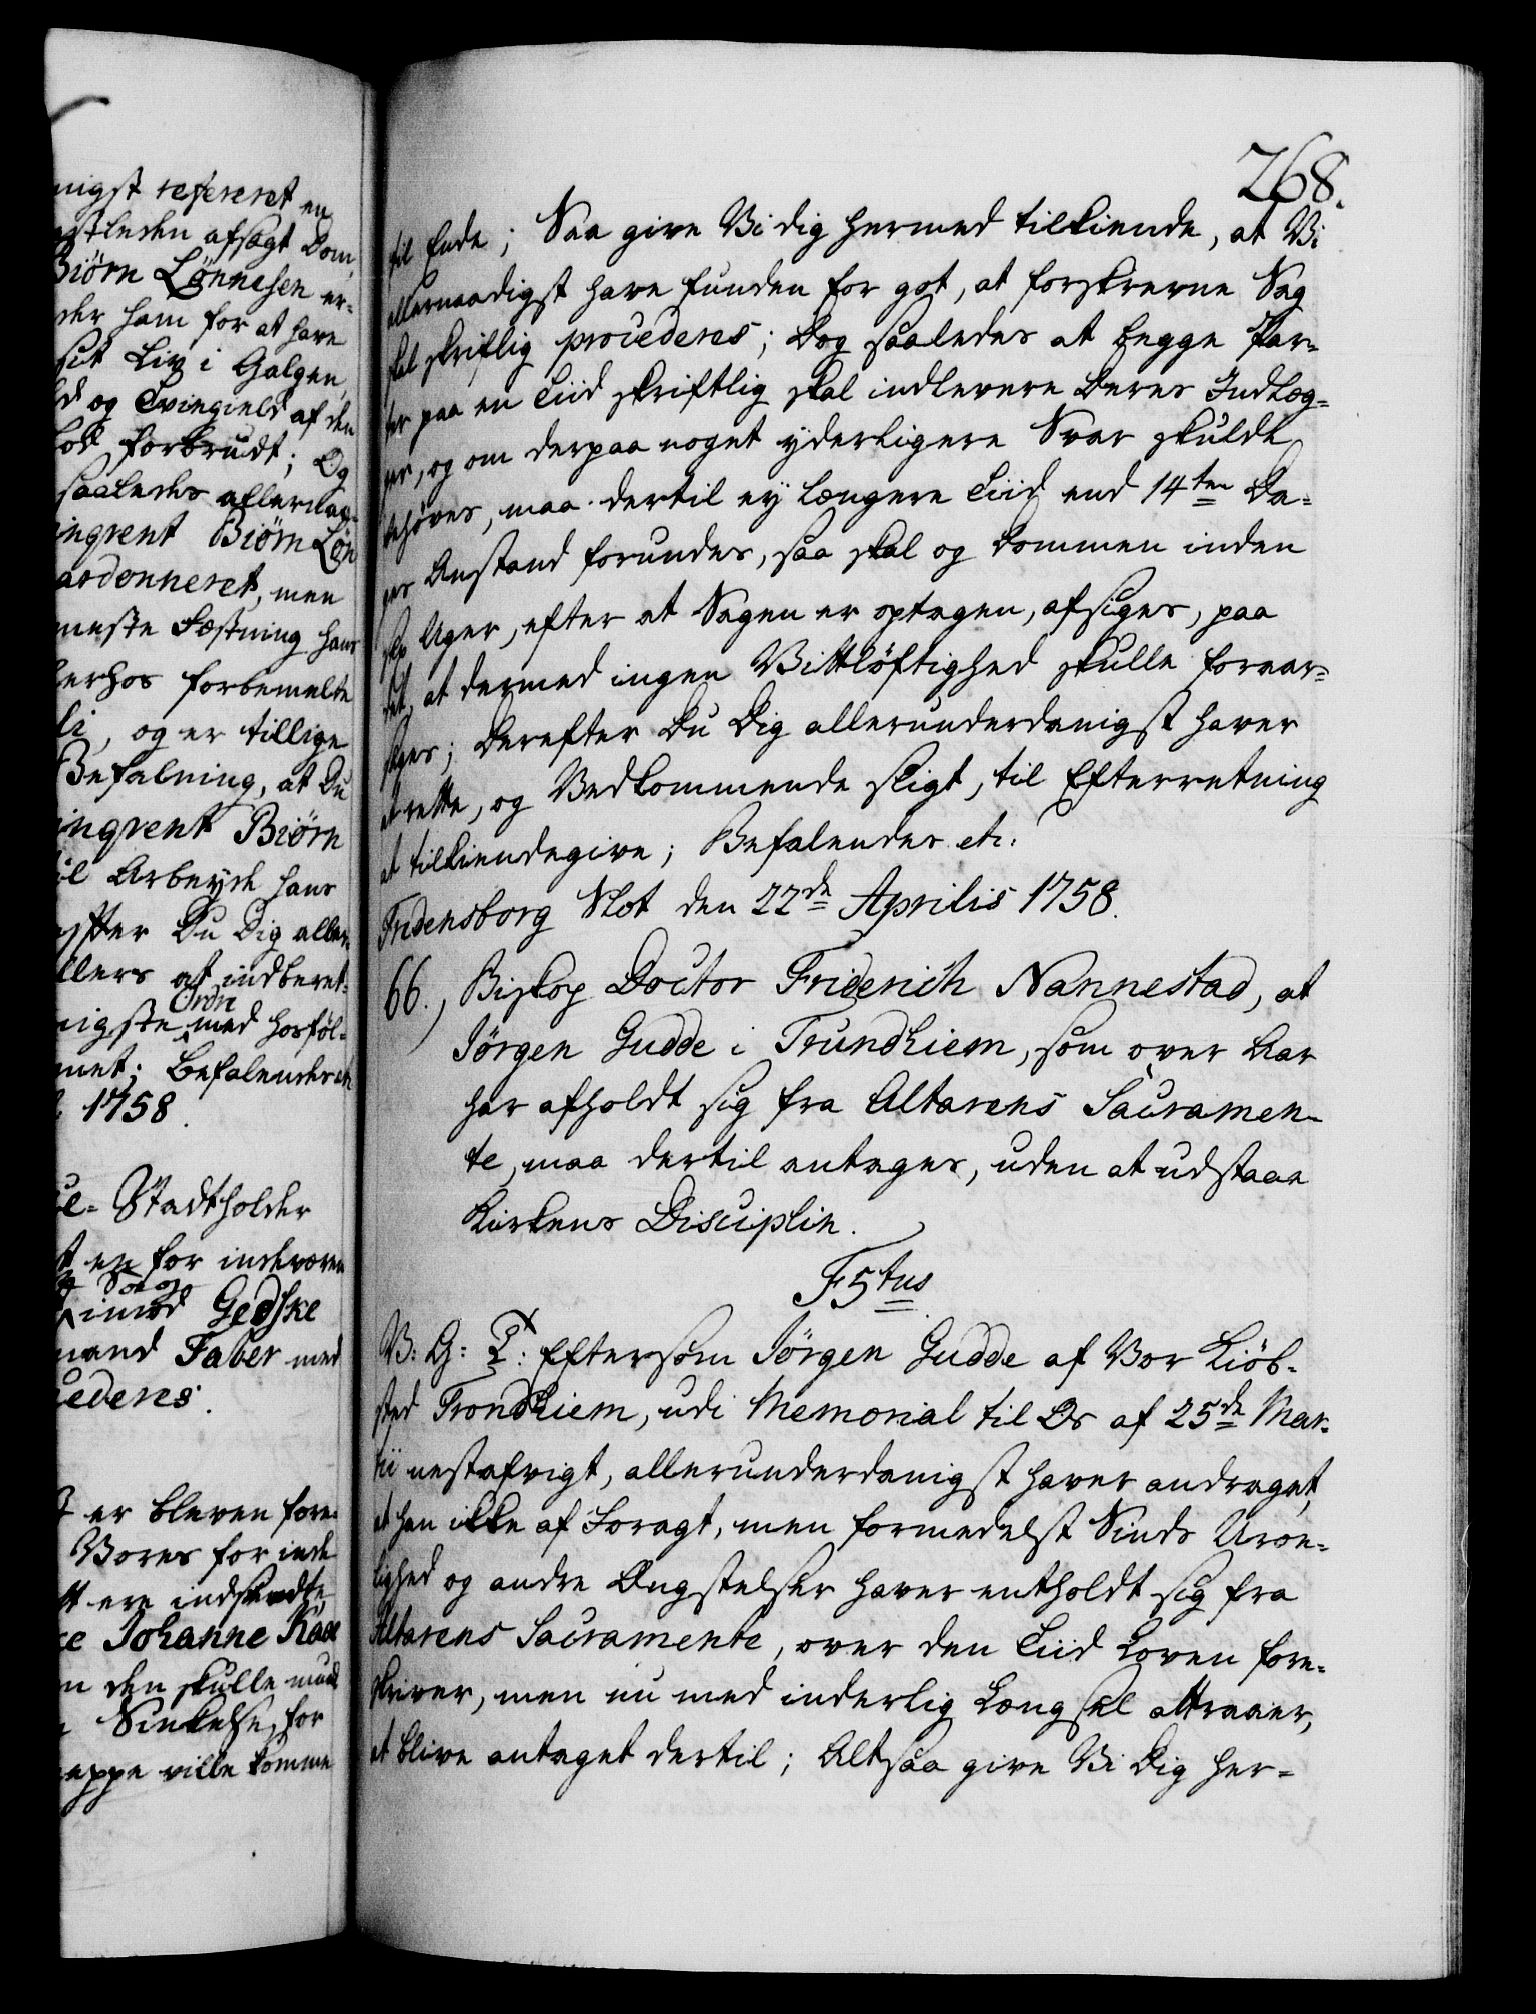 nigst refereret en
afsagt Dom,
Biørn Lønnesen er-
der ham for at have
sit Liv i Galgen,
og Tvingield af den
forbrudt; Og
saaledes allernaa-
inqvent Biørn Løn
ardonneret, men
neste Fæstning hans
derhos forbemelte
li, og er tillige
Befalning, at Du
inqvent Biørn
til Arbeyde hans
effter Du Dig aller-
ellers at indberet-
Ordre
nigste med hosføl-
met; Befalendes etc
1758.
ce-Stadtholder
en for indeværen
Sag
imod Gedske
mand Faber med
cederes.
er bleven fore-
Vores for inde
ere indstevnte,
Johanne
den skulle
Sinkelse, for
neppe ville komme
268.
til Ende; Saa give Vi dig hermed tilkiende, at Vi
allernaadigst have funden for got, at forskrevne Sag
skal skriftlig procederes; Dog saaledes at begge Par-
ter paa en Tiid skriftlig skal indlevere Deres Indlæg-
ger, og om derpaa noget yderligere Svar skulde
behøves, maa dertil ey længere Tiid end 14ten Da-
ges Anstand forundes, saa skal og Dommen inden
sex Uger, efter at Sagen er optagen, afsiges, paa
det, at dermed ingen Vittløftighed skulle foraar-
sages; Derefter Du Dig allerunderdanigst haver
at rette, og Vedkommende sligt, til Efterretning
at tilkiendegive; Befalendes etc.
Fridensborg Slot den 22de Aprilis 1758.
66.) Biskop Doctor Friderich Nannestad, at
Jørgen Gudde i Trundhiem, som over Aar
har afholdt sig fra Altarens Sacramen-
te, maa dertil antages, uden at udstaae
Kirkens Disciplin.
F5tus
V: G: T: Eftersom Jørgen Gudde af Vor Kiøb-
sted Trondhiem, udi Memorial til Os af 25de Mar-
tii nestafvigt, allerunderdanigst haver andraget,
at han ikke af Foragt, men formedelst Sinds Uroe-
lighed og andre Ængstelser haver entholdt sig fra
Altarens Sacramente, over den Tiid Loven fore-
skriver, men nu med inderlig Længsel attraaer,
at blive antaget dertil; Altsaa give Vi Dig her-